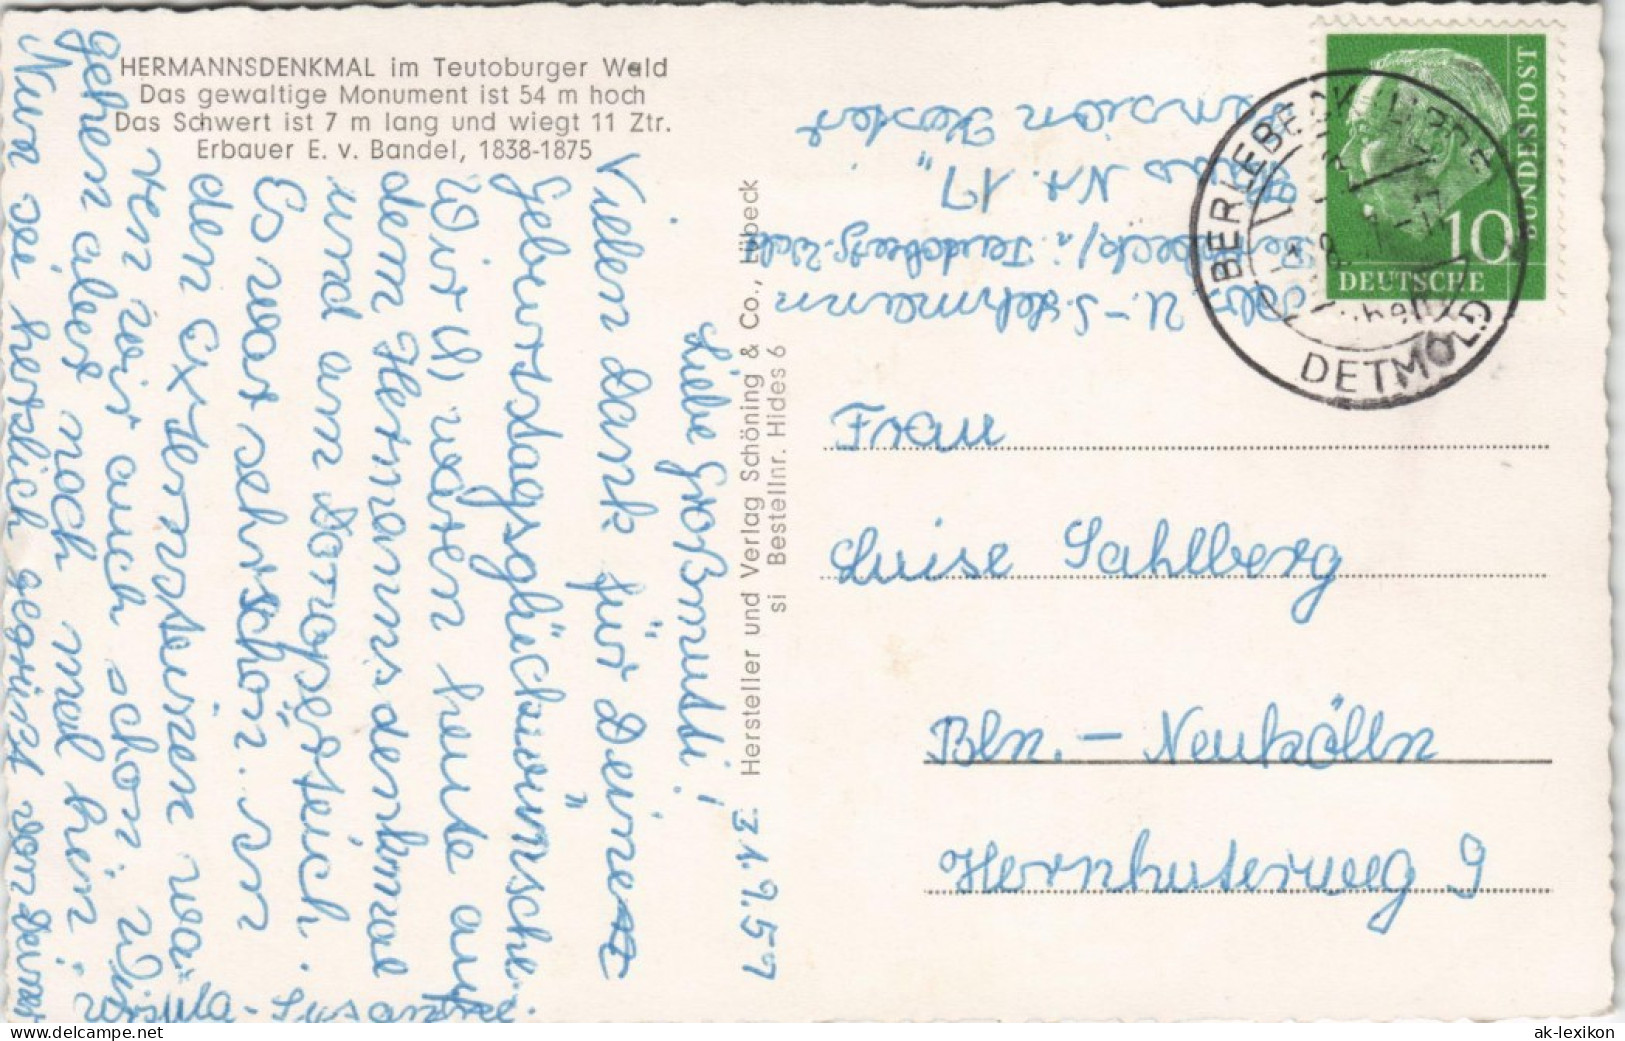 HERMANNSDENKMAL im Teutoburger Wald
Das gewaltige Monument ist 54 m hoch
Das Schwert ist 7 m lang und wiegt 11 Ztr.
Erbauer E. v. Bandel, 1838-1875
31.7.57
Liebe Großmutti!
Vielen Dank für Deine
Geburtstagsglückwünsche.
Wir waren heute auf
dem Hermannsdenkmal
und am Donoperteich.
Es war sehr schön. In
den Externsteinen wa-
ren wir auch schon. Wir
gehen aber noch mal hin.
Nun sei herzlich gegrüßt von Deiner
Susanne
Hersteller und Verlag Schöning & Co., Lübeck
si Bestellnr. Hides 6
U.-S. Lehmann
Berlebeck/i. Teutoburg. Wald
Haus Nr. 17
Pension
BERLEBECK LIPPE
DETMOLD
DEUTSCHE
BUNDESPOST
10
Frau
Luise Sahlberg
Bln.-Neukölln
Herrnhuterweg 9
delcampe.net
ak-lexikon